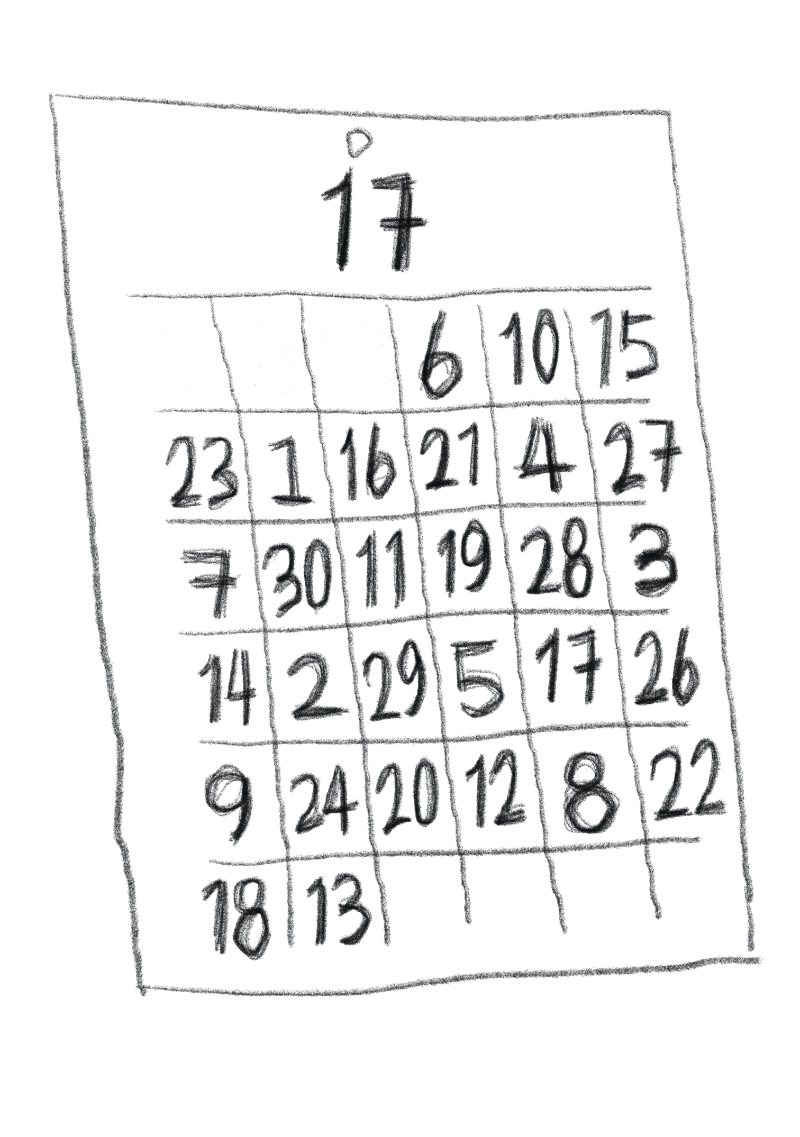 17
6 10 15
23 1 16 21 4 27
7 30 11 19 28 3
14 2 29 5 17 26
9 24 20 12 8 22
18 13